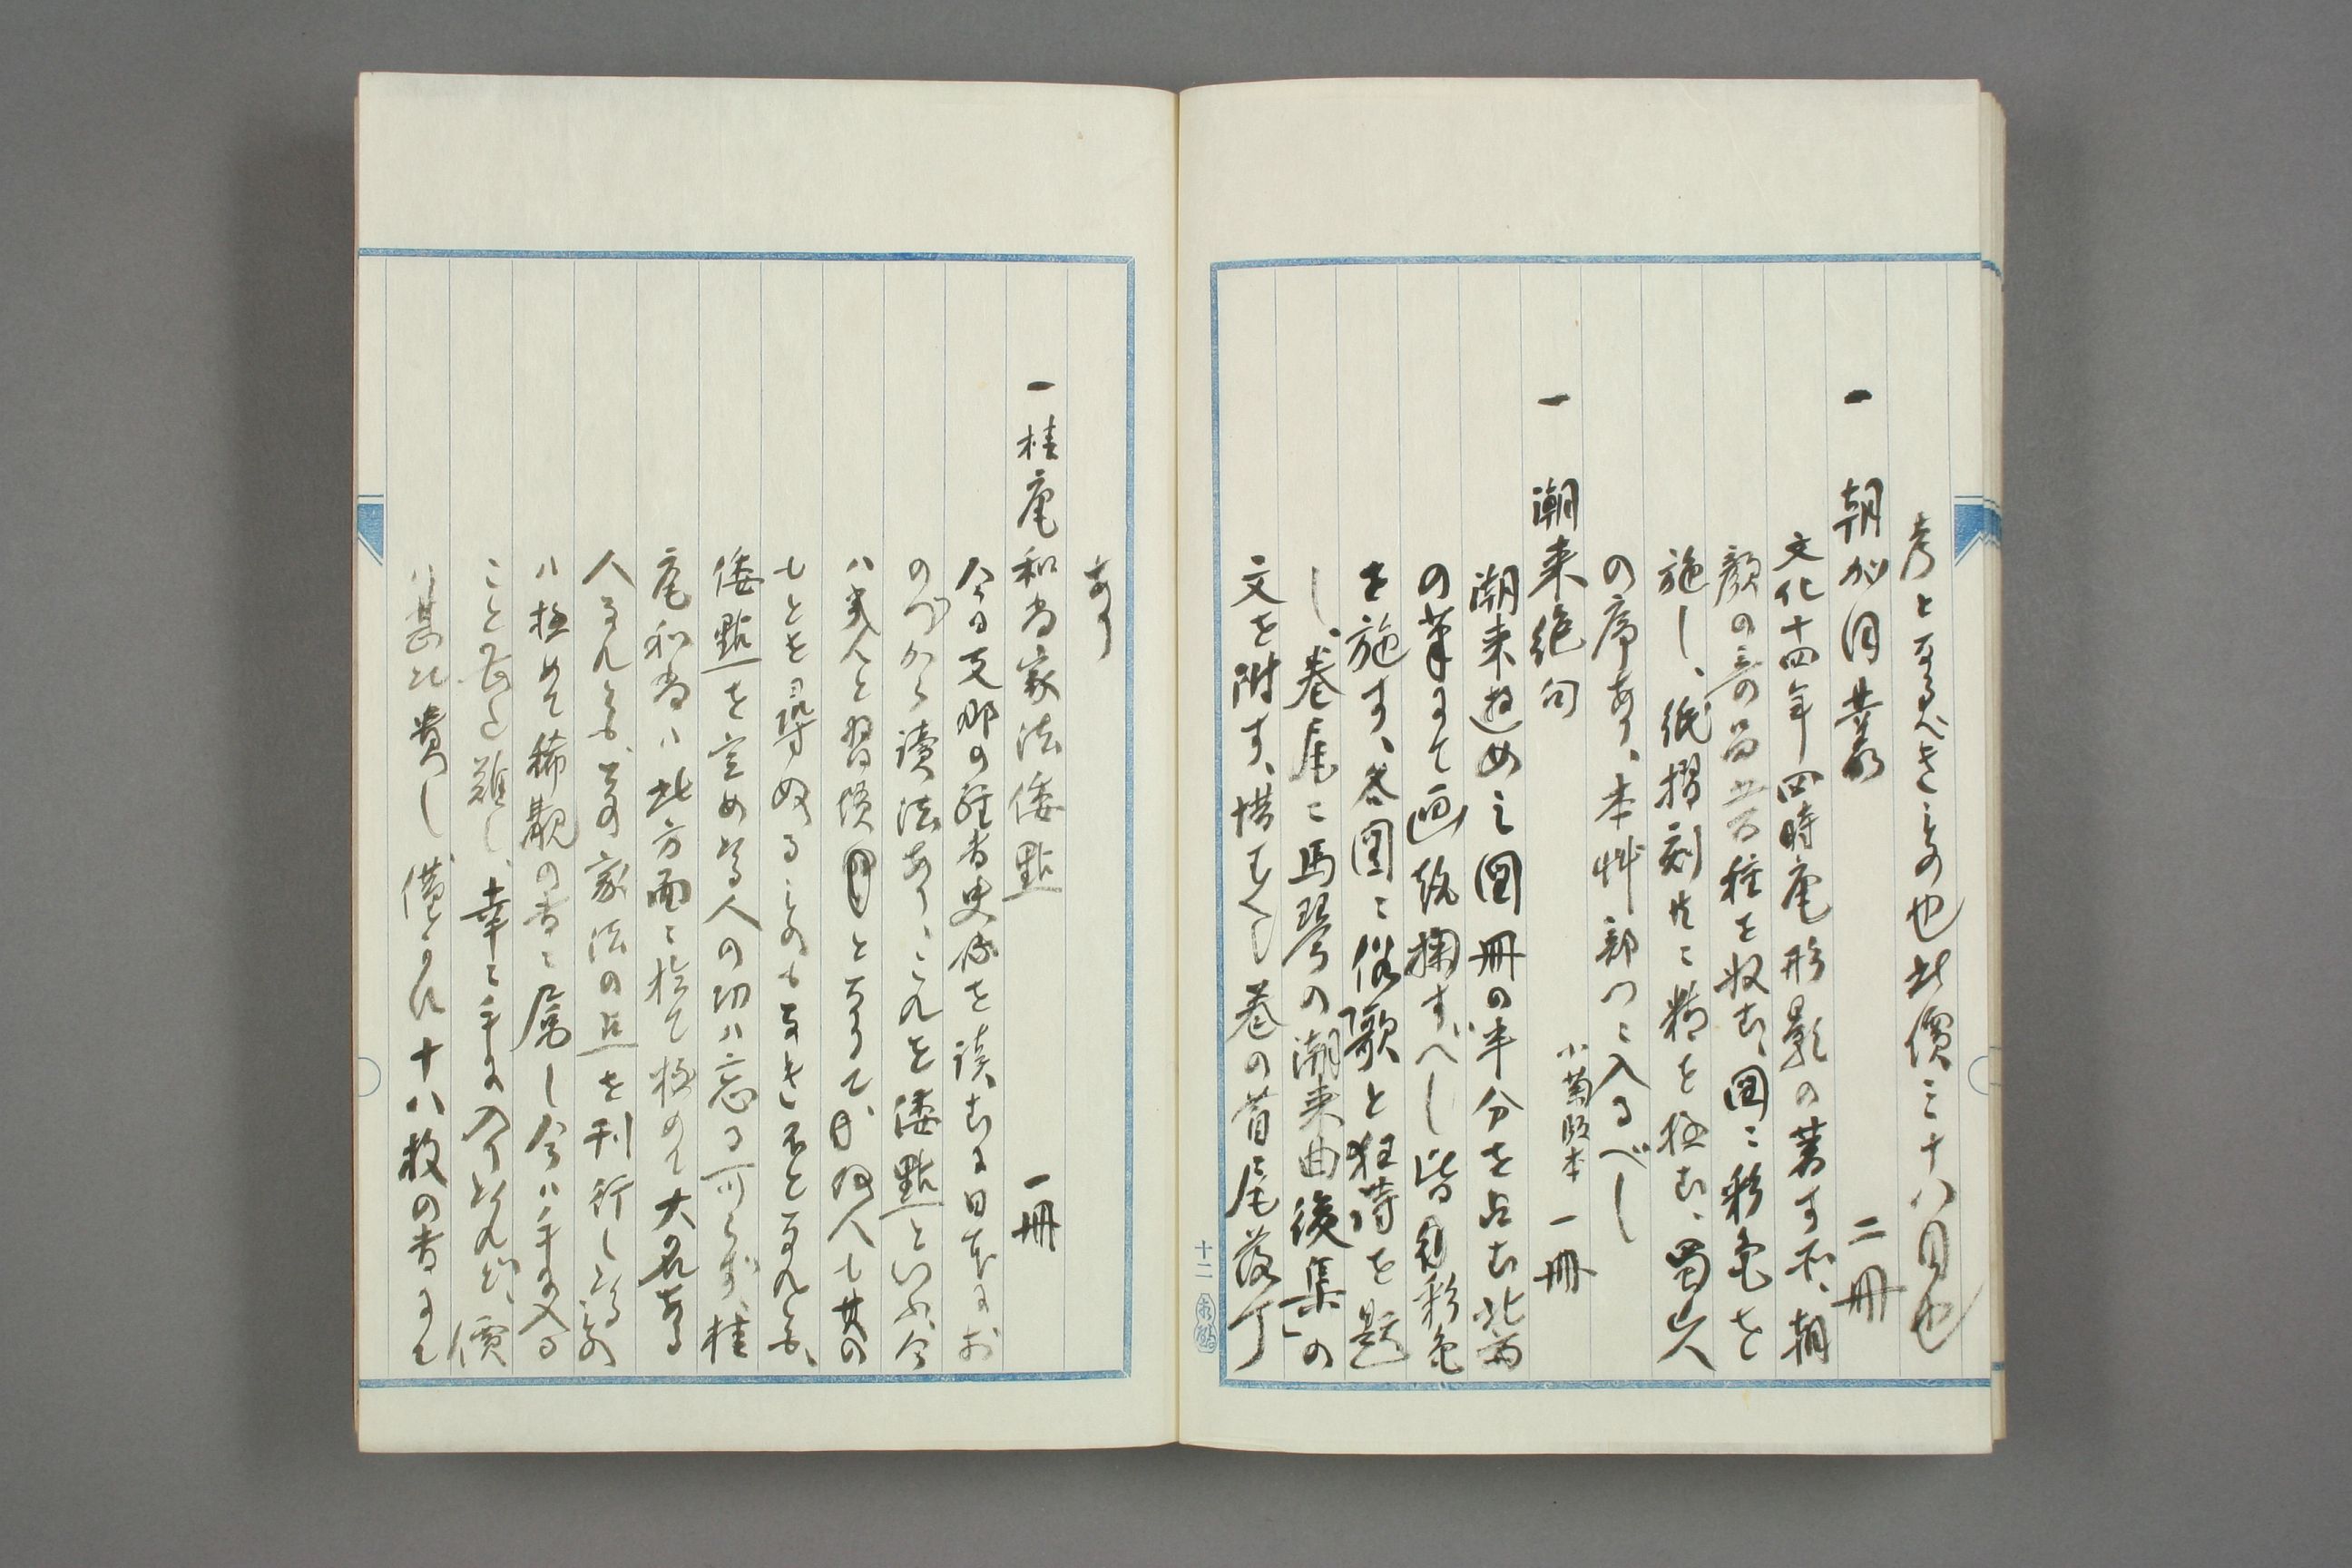 考となるべきもの也此價三十八円也
一 朝かほ叢 二冊
文化十四年四時庵形影の著す所、朝
顔の奇品を収む、図ニ彩色を
施し、紙摺刻共ニ精を極む、蜀山人
の序あり、本艸部門ニ入るべし
一 潮来絶句 小菊版本 一冊
潮来遊びの図冊の半分を占む北斎
の筆にて画致掬すべし皆彩色
を施す、各図ニ俗歌と狂詩を題
し、巻尾ニ馬琴の潮来曲後集の
文を附す、惜むべし巻の首尾落丁
十二
あり
一桂庵和尚家法倭點 一冊
今日支那の経書史傳を読むに日本にお
のづから讀法あり、これを倭點といふ、今
ハ我人と習慣となりて、何人も其の
もとを尋ぬるものもなき有となれども、
倭點を定めたる人の功ハ忘る可らず、桂
庵和尚ハ此方面ニ於て極めて大名ある
人なれども、その家法の点を刊行したるもの
ハ極めて稀覯の書ニ属し今ハ手に入る
こと甚だ難し、幸ニ手に入りたれど、價
ハ甚だ貴し僅々十八枚の書にて